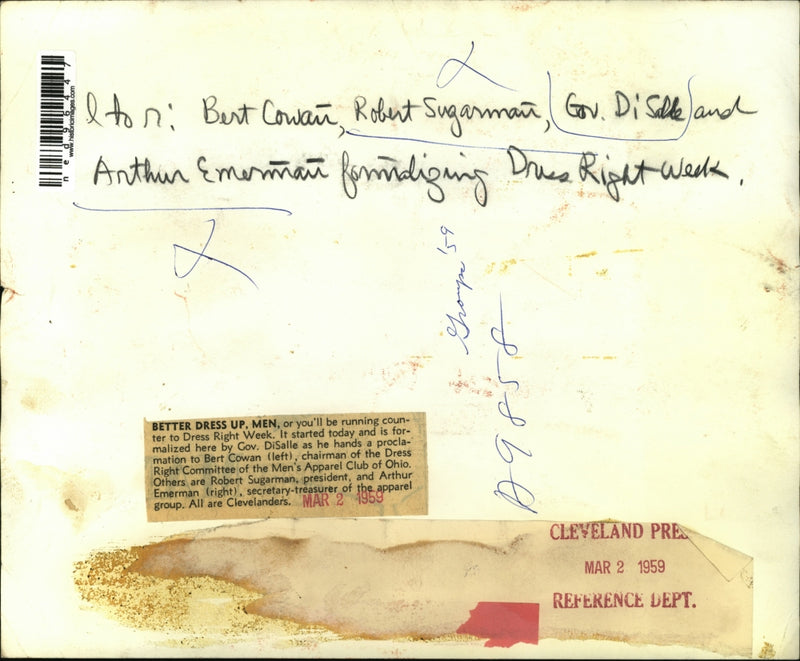 ned96447
www.historicimages.com
l to r: Bert Cowan, Robert Sugarman, Gov. DiSalle and
Arthur Emerman formalizing Dress Right Week.
Groups '59
A9858
BETTER DRESS UP, MEN, or you'll be running coun-
ter to Dress Right Week. It started today and is for-
malized here by Gov. DiSalle as he hands a procla-
mation to Bert Cowan (left), chairman of the Dress
Right Committee of the Men's Apparel Club of Ohio.
Others are Robert Sugarman, president, and Arthur
Emerman (right), secretary-treasurer of the apparel
group. All are Clevelanders. MAR 2 1959
CLEVELAND PRES
MAR 2 1959
REFERENCE DEPT.